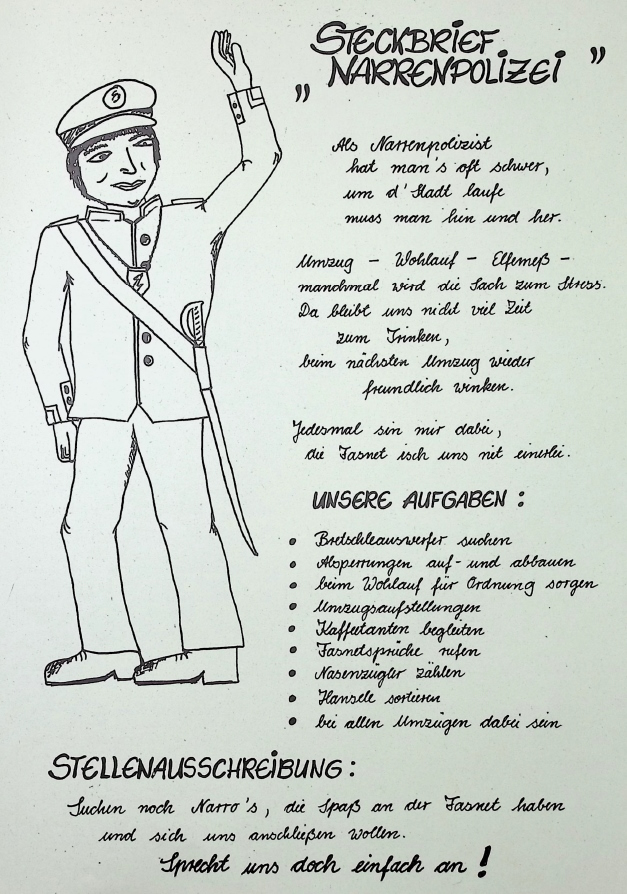 STECKBRIEF
„ NARRENPOLIZEI ”
Als Narrenpolizist
hat man's oft schwer,
um d' Stadt laufe
muss man hin und her.
Umzug - Wohlauf - Elfemeß -
manchmal wird die Sach zum Stress.
Da bleibt uns nicht viel Zeit
zum Trinken,
beim nächsten Umzug wieder
freundlich winken.
Jedesmal sin mir dabei,
die Fasnet isch uns nit einerlei.
UNSERE AUFGABEN :
• Bretschleauswerfer suchen
• Absperrungen auf- und abbauen
• beim Wohlauf für Ordnung sorgen
• Umzugsaufstellungen
• Kaffeetanten begleiten
• Fasnetsprüche rufen
• Nasenzügler zählen
• Hansele sortieren
• bei allen Umzügen dabei sein
STELLENAUSSCHREIBUNG :
Suchen noch Narro's, die Spaß an der Fasnet haben
und sich uns anschließen wollen.
Sprecht uns doch einfach an !